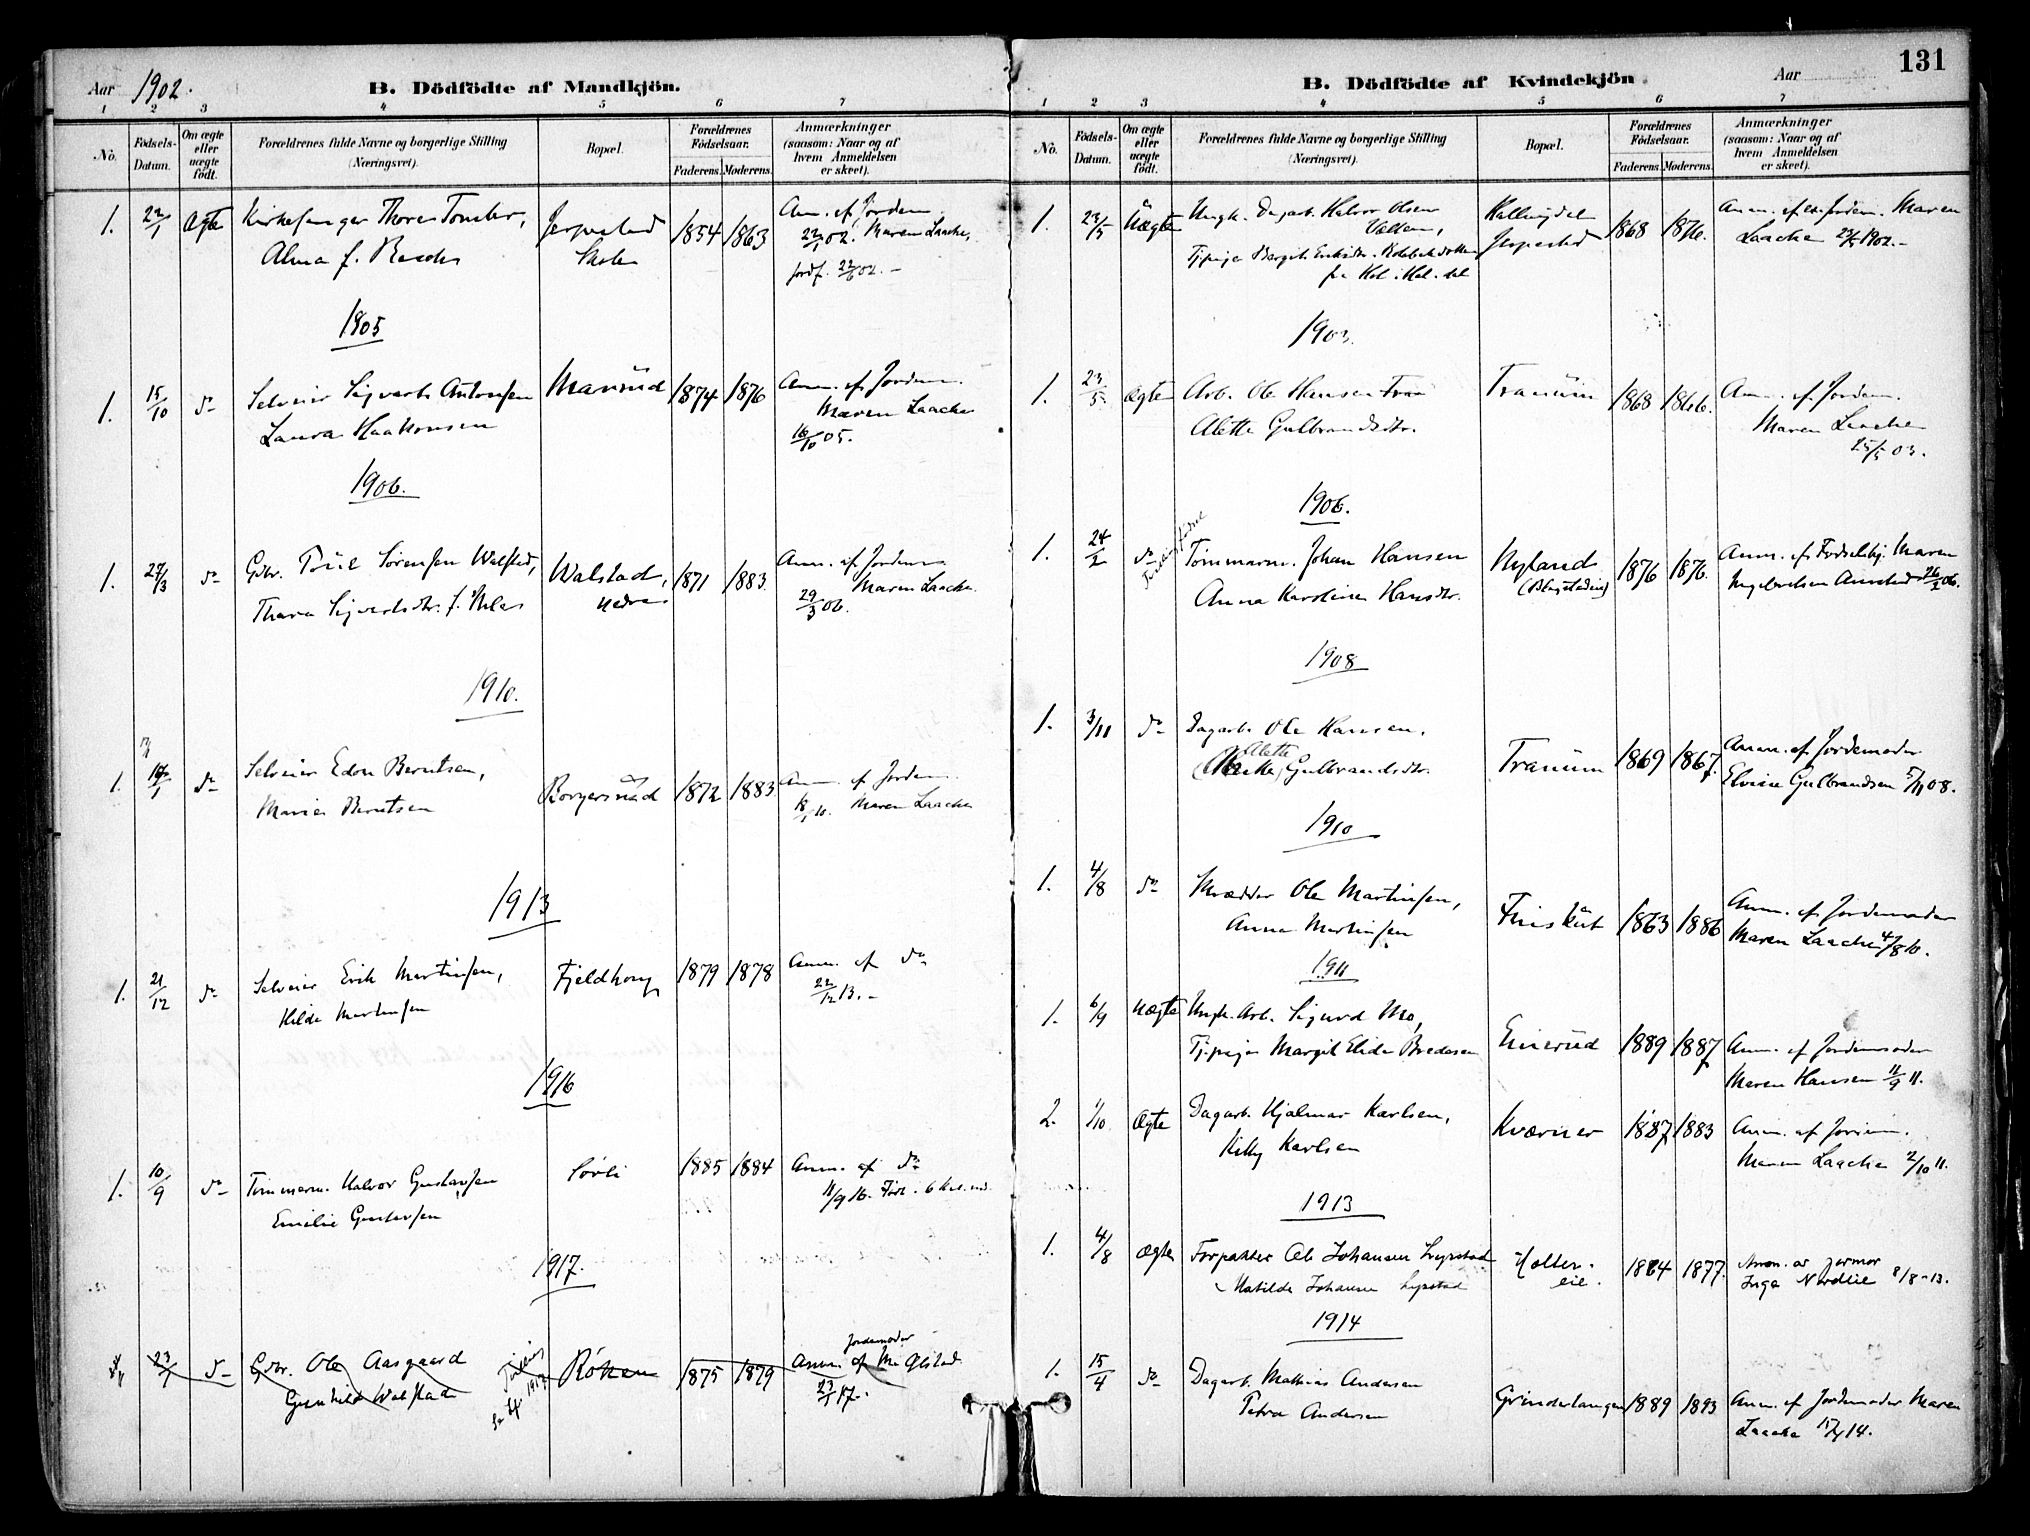 Aar 1902.
B. Dödfödte af Mandkjön.
1 2 3 4 5 6 7
No.
Födsels-Datum.
Om ægte eller uægte födt.
Forældrenes fulde Navne og borgerlige Stilling (Næringsvei).
Bopæl.
Forældrenes Födselsaar.
Faderens. Moderens.
Anmærkninger (saasom: Naar og af hvem Anmeldelsen er skeet).
1. 22/1 Ægte Kirkesanger Thore
Alma f.
Skole 1854 1863
Anm. af Jordem.
22/1 02. Maren Laache,
1905
1. 15/10 do Selveier Sigvart Antonsen
Laura Haakonsen
Marud 1874 1876
Anm. af Jordem.
Maren Laache
16/10 05.
1906.
1. 27/3 do Gbr. Sørensen Walstad,
Thara Sigvartsdtr. f.
Walstad, nedre 1871 1883
Anm. af Jordem.
Maren Laache
29/3 06.
1910.
1. do Selveier Edon Berntsen,
Marie Berntsen
Borgersrud 1872 1883
Anm. af Jordem.
18/1 10. Maren Laache
1913
1. 21/12 do Selveier Erik Martinsen,
Hilda Martinsen
Fjeldhong 1879 1878
Anm. af do
22/12 13.-
1916
1. 10/9 do Tømmerm. Halvor Gustavsen
Emilie Gustavsen
Sørli 1885 1884
Anm. af do
11/9 16.
1917.
23/1 do Gbr. Ole Aasgaard
Gunhild Walstad
Røken 1875 1879
Jordemoder
Anm. af M. Glstad
23/1 17.
131
Aar
B. Dödfödte af Kvindekjön.
1 2 3 4 5 6 7
No.
Födsels-Datum.
Om ægte eller uægte födt.
Forældrenes fulde Navne og borgerlige Stilling (Næringsvei).
Bopæl.
Forældrenes Födselsaar.
Faderens. Moderens.
Anmærkninger (saasom: Naar og af hvem Anmeldelsen er skeet).
1. 23/5 Uægte Ungk. Dagarb. Halvor Olsen
Tjpige Bergit Eriksdtr.
Hallingdal
1868 1876.
Anm. af Jordem. Maren
Laache 23/5 1902.-
1903.
1. 23/5 Ægte Arb. Ole Hansen
Alette Gulbrandsdtr.
Tranum 1868 1866.
Anm. af Jordem.
Maren Laache
25/5 03.
1906.
1. 24/2 do Tømmerm. Johan Hansen
Anna Karoline Hansdtr.
Nyland
(Blegstadeie)
1876 1876.
Anm. af Fødselshj. Maren
Ingebretsen 26/2 06.
1908
1. 3/11 do Dagarb. Ole Hansen,
Alette
Gulbrandsdtr.
Tranum 1869 1867.
Anm. af Jordemoder
Elvine Gulbrandsen 5/11 08.
1910
1. 4/8 do Skrædder Ole Martinsen,
Anna Martinsen
Finskut 1863 1886
Anm. af Jordemoder
Maren Laache 4/8 10.
1911
1. 6/9 Uægte Ungk. Arb. Sigurd Mo,
Tjpige Margit Elida Bredesen
Einerud 1889 1887
Anm. af Jordemoder
Maren Hansen 11/9 11.
2. 1/10 Ægte Dagarb. Hjalmar Karlsen,
Kitty Karlsen
Kværner 1887 1883
Anm. af Jordem.
Maren Laache 2/10 11.
1913
1. 4/8 Ægte Forpakter Ole Johansen Lyxstad
Matilde Johansen Lyxstad
Holter-
eie.
1864 1877.
Anm. av Jormor
Inga Nordlie 8/8-13.
1914
1. 15/4 do Dagarb. Mathias Andersen
Petra Andersen
Grinderhaugen 1889 1893
Anm. af Jordemoder Maren
Laache 15/4 14.